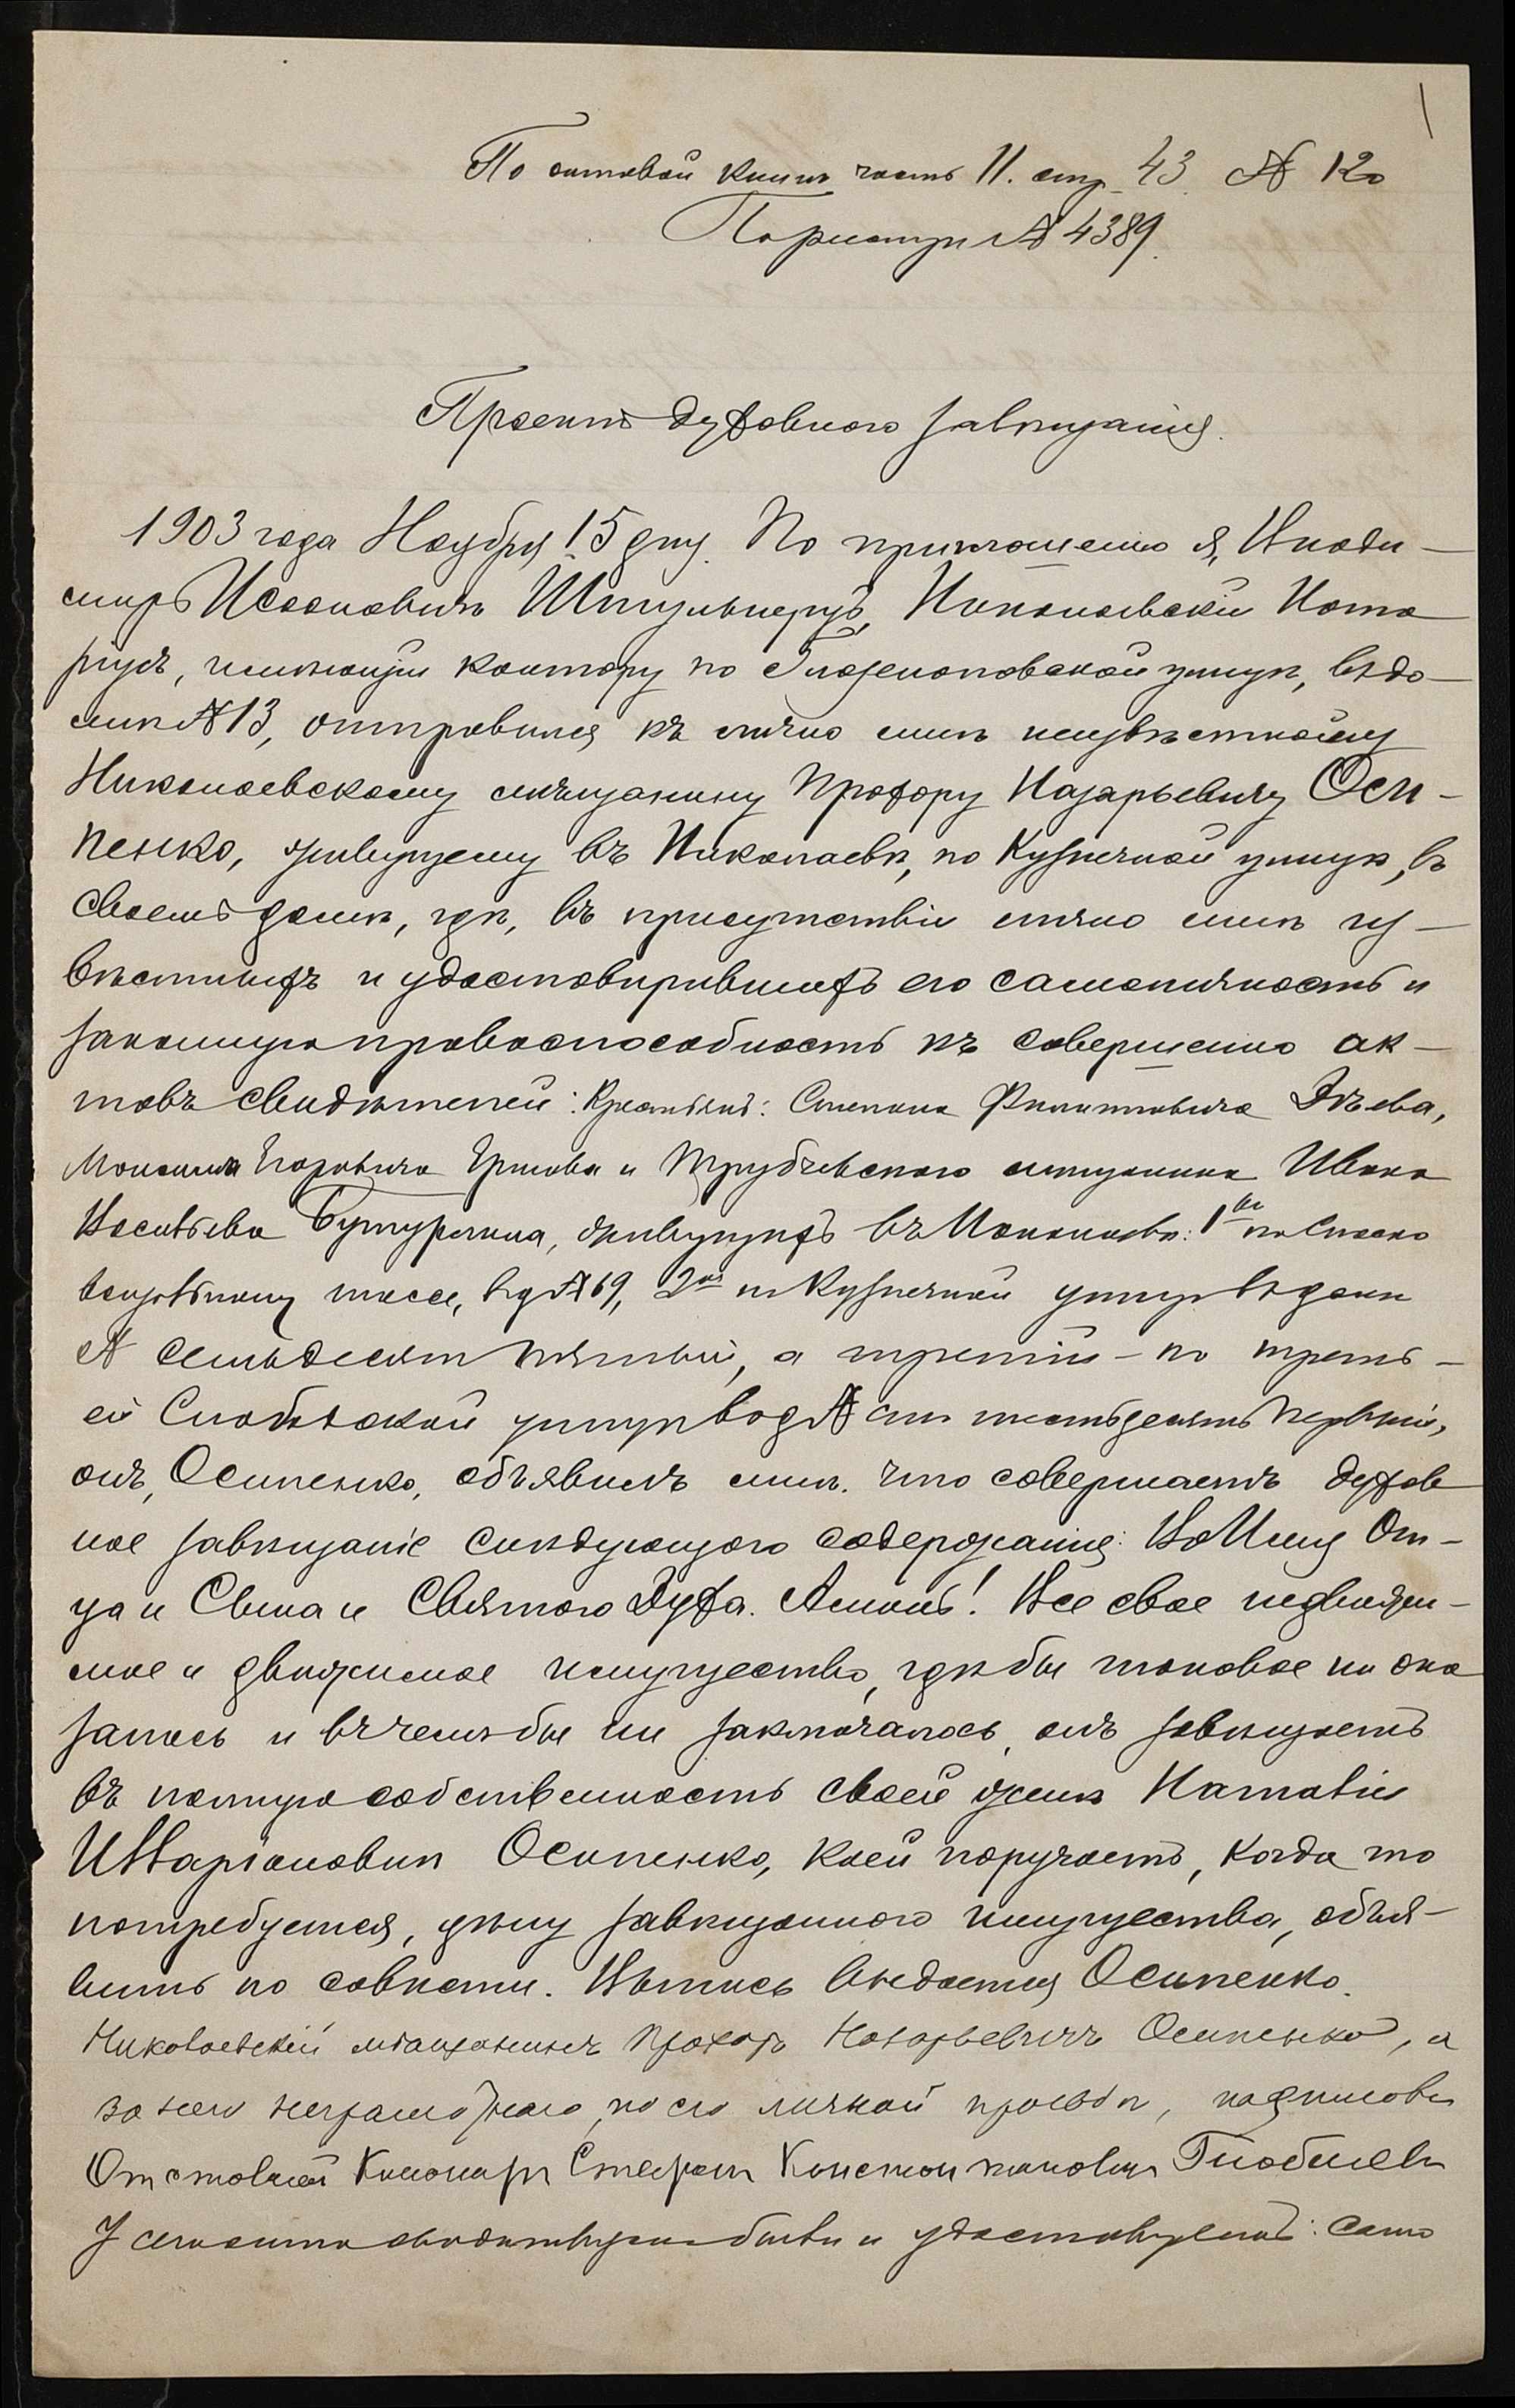 По актовой книгѣ часть II. стр. 43. № 120
По реестру № 4389.
Проектъ духовнаго завѣщанія.
1903 года Ноября 15 дня. По приглашенію я, Влади-
миръ Исааковичъ Шпульнеръ, Николаевскій Нота
ріусъ, имѣющій контору по Глазенаповской улицѣ, въ до-
мѣ № 13, отправился къ лично мнѣ неизвѣстному
Николаевскому мѣщанину Прохору Назарьевичу Оси-
пенко, живущему въ Николаевѣ, по Кузнечной улицѣ, въ
своемъ домѣ, гдѣ, въ присутствіи лично мнѣ из-
вѣстныхъ и удостовѣрившихъ его самоличность и
законную правоспособность къ совершенію ак-
товъ свидѣтелей: Крестьянъ: Степана Филипповича
Егоровича Ершова и Трубчевскаго мѣщанина Ивана
Васильева Бутурлина, живущихъ въ Николаевѣ: 1й по Спаско
въ д № 69, 2й по Кузнечной улицѣ въ домѣ
№ семьдесят пятый, а третій - по треть-
ей Слободской улицѣ въ д № сто шестьдесятъ первый,
онъ, Осипенко, объявилъ мнѣ, что совершаетъ духов
ное завѣщаніе слѣдующаго содержанія: Во Имя От-
ца и Сына и Святого Духа. Аминь! Все свое недвижи-
мое и движимое имущество, гдѣ бы таковое ни ока
залось и въ чемъ бы ни заключалось, онъ завѣщаетъ
въ полную собственность своей женѣ Наталіи
Иларіоновнѣ Осипенко, коей поручаетъ, когда то
потребуется, цѣну завѣщаннаго имущества, объя-
вить по совѣсти. Выпись выдается Осипенко.
Николаевскій мѣщанинъ Прохоръ Назарьевичъ Осипенко, а
за него неграмотнаго, по его личной просьбѣ, подписалъ
Отставной Канониръ Стефанъ Константиновичъ
У сего акта свидѣтелями были и удостовѣряемъ: само